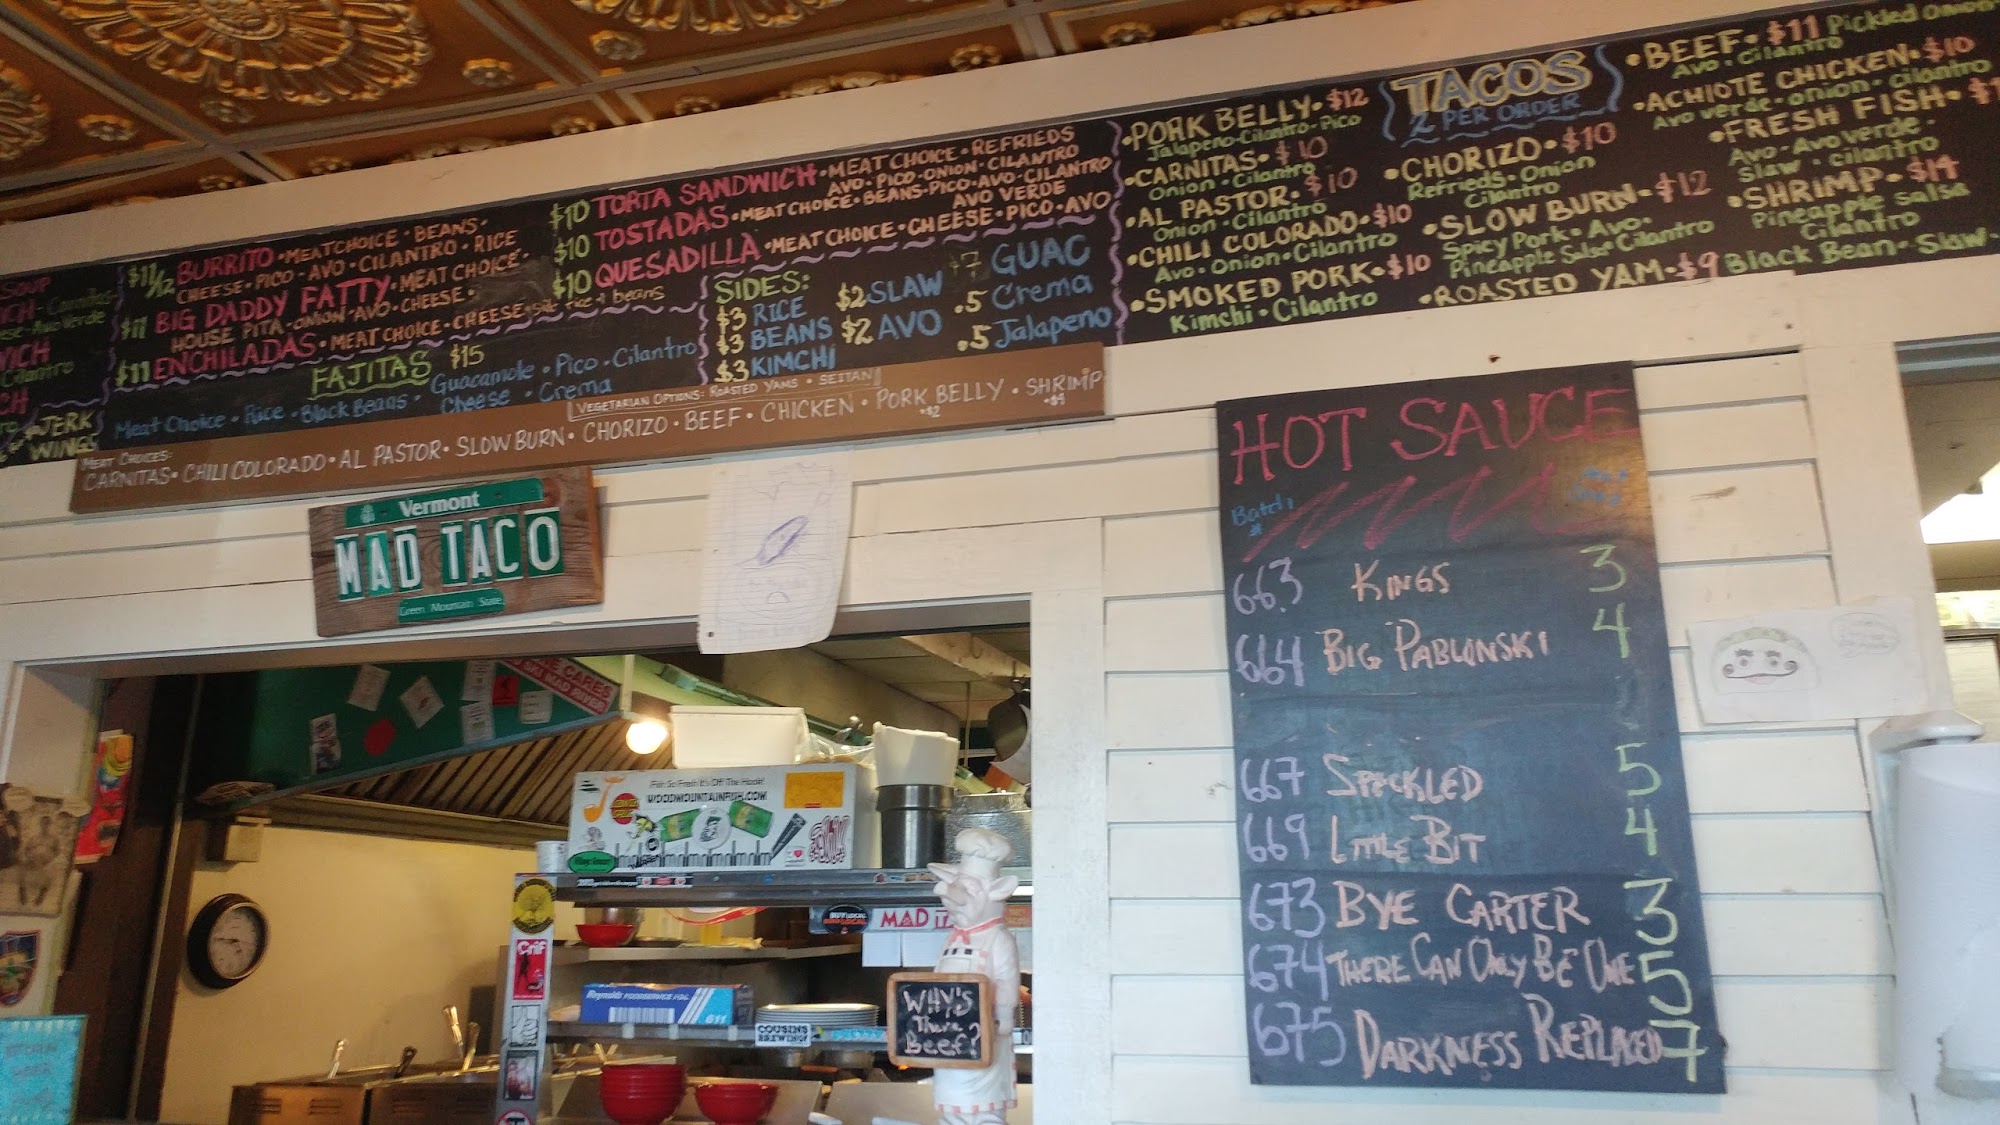 SOUP
Cilantro
JERK
WINGS
$11 1/2 BURRITO • MEAT CHOICE • BEANS •
CHEESE • PICO • AVO • CILANTRO • RICE
$11 BIG DADDY FATTY • MEAT CHOICE •
HOUSE PITA • ONION • AVO • CHEESE •
$11 ENCHILADAS • MEAT CHOICE • CHEESE • side rice & beans
FAJITAS $15
Meat Choice • Rice • Black Beans • Guacamole • Pico • Cilantro
Cheese • Crema
$10 TORTA SANDWICH • MEAT CHOICE • REFRIEDS
AVO • PICO • ONION • CILANTRO
$10 TOSTADAS • MEAT CHOICE • BEANS • PICO • AVO • CILANTRO
AVO VERDE
$10 QUESADILLA • MEAT CHOICE • CHEESE • PICO • AVO
SIDES:
$3 RICE
$3 BEANS
$3 KIMCHI
$2 SLAW
$2 AVO
$7 GUAC
.5 Crema
.5 Jalapeno
TACOS
2 PER ORDER
• PORK BELLY • $12
Jalapeno • Cilantro • Pico
• CARNITAS • $10
Onion • Cilantro
• AL PASTOR • $10
Onion • Cilantro
• CHILI COLORADO • $10
Avo • Onion • Cilantro
• SMOKED PORK • $10
Kimchi • Cilantro
• CHORIZO • $10
Refrieds • Onion
Cilantro
• SLOW BURN • $12
Spicy Pork • Avo •
Pineapple Salsa • Cilantro
• ROASTED YAM • $9 Black Bean • Slaw •
• BEEF • $11 Pickled Onion
Avo • Cilantro
• ACHIOTE CHICKEN • $10
Avo verde • onion • cilantro
• FRESH FISH •
Avo • Avo verde •
Slaw • cilantro
• SHRIMP • $14
Pineapple salsa
Cilantro
VEGETARIAN OPTIONS: ROASTED YAMS • SEITAN
MEAT CHOICES:
CARNITAS • CHILI COLORADO • AL PASTOR • SLOW BURN • CHORIZO • BEEF • CHICKEN • PORK BELLY • SHRIMP
+$2 +$4
Vermont
MAD TACO
Green Mountain State
HOT SAUCE
Batch
#
663 KINGS 3
664 BIG PABLONSKI 4
667 SPECKLED 5
669 LITTLE BIT 4
673 BYE CARTER 3
674 THERE CAN ONLY BE ONE 5
675 DARKNESS REPLACED 7
Fish So Fresh It's Off The Hook!
WOODMOUNTAINFISH.COM
MAD
Crif
Reynolds FOODSERVICE FOIL
611
COUSINS
BREWING
WHY'S
There
Beef?